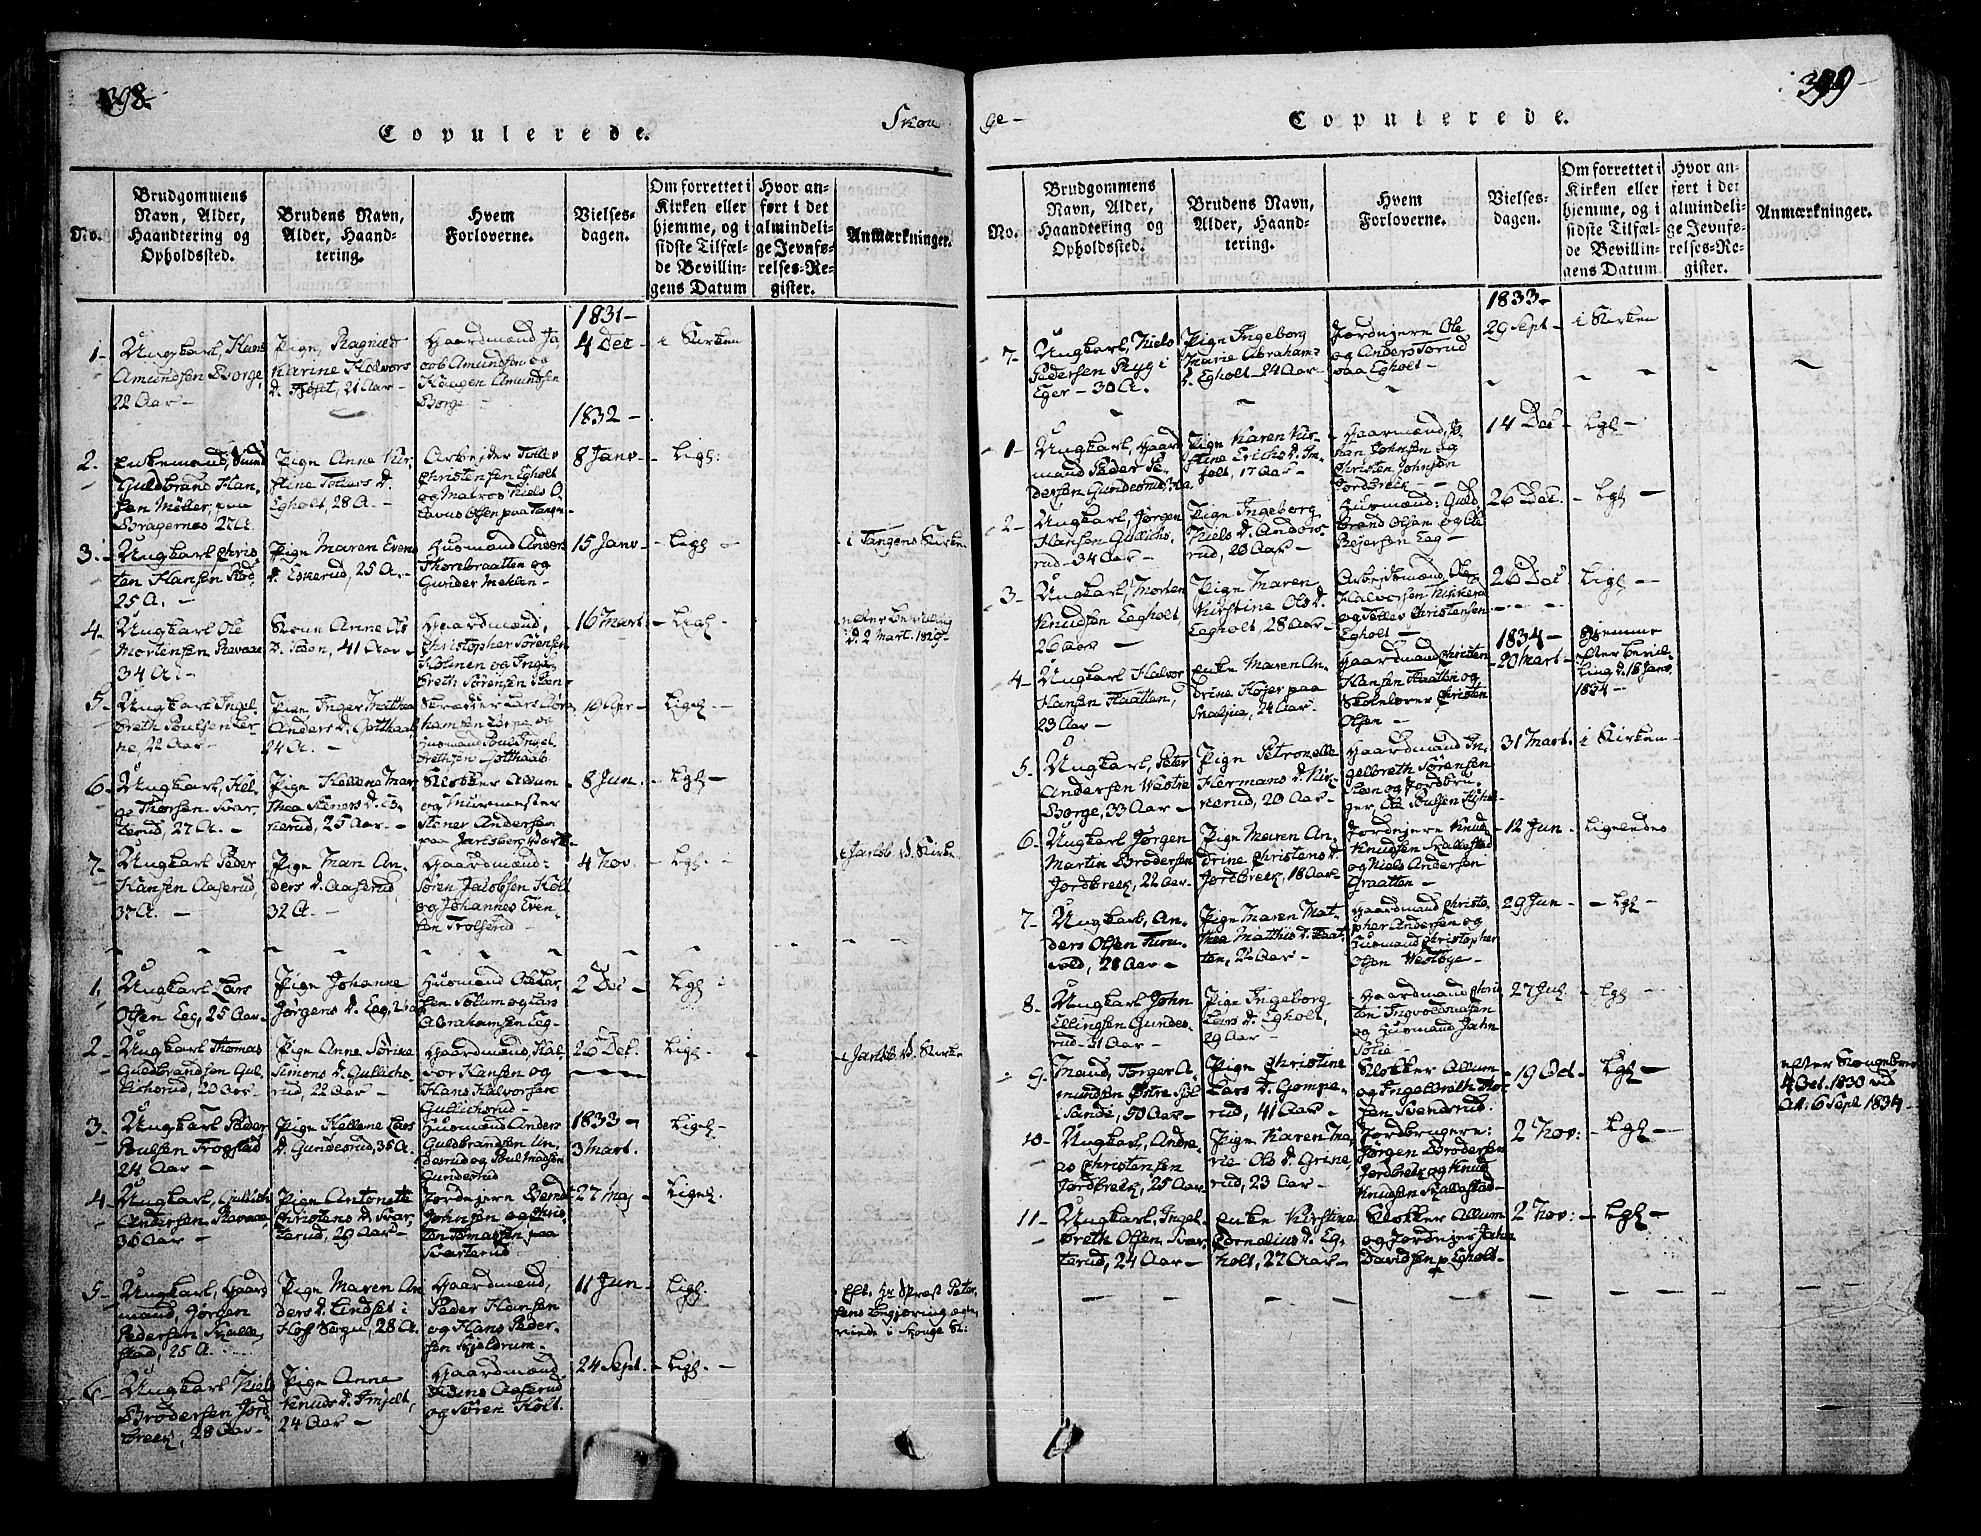 398.
Copulerede.
Skou
No.
Brudgommens Navn, Alder, Haandtering og Opholdssted.
Brudens Navn, Alder, Haandtering.
Hvem Forloverne.
Vielsesdagen.
Om forrettet i Kirken eller hjemme, og i sidste Tilfælde Bevillingens Datum
Hvor anført i det almindelige Jevnførelses-Register.
Anmærkninger.
1831-
1-
Ungkarl, Hans
Amundsen Borge,
22 Aar-
Pige, Ragnild
Karine Halvors
d. 21 Aar-
Gaardmænd Ja
cob Amundsen og
Amundsen
Borge-
4 Dec-
i Kirken
1832-
2.
Enkemand,
Guldbrand Han,
sen Møller, paa
Bragernes 27 A.
Pige Anne Kir,
stine Tollevs d.
Egholt, 28 A.-
Arbejder Tollev
Christensen Egholt
og Matros Niels O,
lavus Olsen paa Tangen-
8 Janv-
Ligl:
3.
Ungkarl Chris
ten Hansen
25 A.-
Pige Maren Evens
d. Eskerud, 25 A.-
Husmænd Anders
Thorebraatten og
Gunder
15 Janv-
Ligl-
i Tangens Kirke
4.
Ungkarl Ole
Mortensen Revaae
34 A.-
Anne Ols
d. 41 Aar-
Gaardmænd,
Christopher Sørensen
Holmen og Inge,
breth Sørensen
16 Mart.
Ligl-
efter Bevilling
d. 2 Mart.
5-
Ungkarl Ingel,
breth Poulsen
22 Aar-
Pige Inger Mathea
Anders d. Gotthaab
24 A.-
Skrædder Lars
hansen og
Husmand Poul Ingel,
brethsen Gotthaab
Apr-
Ligl-
6-
Ungkarl, Hel,
ge Thorsen Svar,
terud, 27 A.-
Pige Hellene Mar
thea Steners d. Es,
kerud, 25 Aar-
Klokker Allum
og Muurmester
Stener Andersen
paa Jarlsberg Værk-
8 Jun.
Lgl-
7-
Ungkarl Peder
Hansen Aaserud,
37 A.-
Pige Mari An,
ders d. Aaserud,
32 A.-
Gaardmænd:
Søren Jacobsen Holt
og Johannes Even,
sen Trolsrud-
4 Nov.
Lgl.-
i Jarlsb. V. Kirke
1.
Ungkarl Lars
Olsen Eeg, 25 Aar-
Pige Johanne
Jørgens d. Eeg,
Husmænd Ole Lar,
sen Solum og Lars
Abrahamsen Eeg-
2 Dec-
Lgl-
2-
Ungkarl Thomas
Guldbrandsen Gul,
lichsrud, 20 Aar-
Pige Anne Sørine
Simons d. Gullichs,
rud, 22 Aar-
Gaardmænd, Hal,
vor Hansen og
Hans Halvorsen
Gullichsrud-
26 Dec.
Ligl-
i Jarlsb. V. Kirke
1833-
3-
Ungkarl Peder
Poulsen Frogstad
24 Aar-
Pige Hellene Lars
d. Gundesrud, 35 A.
Husmænd Anders
Guldbrandsen Un,
derrud og Poul Madsen
Gundesrud
3 Mart.
Ligl-
4-
Ungkarl, Gullich
Andersen Revaae
30 Aar-
Pige Antonette
Christens d. Svar,
terud, 29 Aar-
Jordejere Bernt
Johnsen og Chris,
ten Tomassen paa
Svarterud-
27 Maj
Ligel.
5-
Ungkarl, Gaard
mand, Jørgen
Pedersen Skalle,
stad, 25 A.
Pige Maren An
ders d. Lindset i
Hof Sogn, 28 A.
Gaardmænd,
Peder Hansen
og Hans Peder,
sen Skjeldrum-
11 Jun-
Ligl.
Efter Hr Prost Peter,
sens Begjæring
viede i Skouge K:
6-
Ungkarl Niels
Brodersen Jord
breek, 28 Aar-
Pige Anne
Knuds d.
24 Aar-
Gaardmænd
Hans Aaserud
og Søren Holt.
24 Sept.
Ligl.-
399
ge-
Copulerede.
No.
Brudgommens Navn, Alder, Haandtering og Opholdssted.
Brudens Navn, Alder, Haandtering.
Hvem Forloverne.
Vielsesdagen.
Om forrettet i Kirken eller hjemme, og i sidste Tilfælde Bevillingens Datum
Hvor anført i det almindelige Jevnførelses-Register.
Anmærkninger.
1833-
7-
Ungkarl, Niels
Pedersen Ryg i
Eger- 30 A.
Pige Ingeborg
Marie Abrahams
d. Egholt- 24 Aar-
Jordejere Ole
og Anders Torud
paa Egholt-
29 Sept-
i Kirken
1-
Ungkarl, Gaard
mand Peder Pe,
dersen Gundesrud
Pige Karen Kir,
stine Erichs d.
17 Aar-
Gaarmænd, Jo,
han Johnsen og
Christen Johnsen
Jordbreek-
14 Dec-
Lgl-
2-
Ungkarl, Jørgen
Hansen Gullichs,
rud- 34 Aar-
Pige Ingeborg
Niels d. Anders,
rud, 20 Aar-
Huusmænd: Guld
brand Olsen og Ole
Rejersen Eeg-
26 Dec.
Lgl-
3-
Ungkarl, Morten
Knudsen Eegholt,
26 Aar-
Pige Maren
Kirstine Ols d.
Eegholt, 28 Aar-
Arbejdsmænd Ole
Halvorsen
og Tollev Christensen
Egholt-
26 Dec
Ligl-
1834-
4-
Ungkarl Halvor
Hansen Haatten,
23 Aar-
Enke Maren An,
drine Højer paa
24 Aar-
Gaardmand Christen
Hansen Haatten og
Skolelærer Christen
Olsen-
20 Mart-
Hjemme
efter Bevil-
ling d. 18 Janv.
1834-
5-
Ungkarl, Peter
Andersen Westre
Borge, 33 Aar-
Pige Petronelle
Hermans d. Kir,
kerud, 20 Aar-
Gaardmand In,
gelbreth Sørensen
Steen og Jordbru,
ger, Ole Poulsen
31 Mart.
i Kirken-
6-
Ungkarl Jørgen
Martin Brodersen
Jordbreek, 22 Aar-
Pige Maren An,
drine Christens d.
Jordbreek, 18 Aar-
Jordejere Knud
Knudsen Skallestad
og Niels Andersen
Graatten-
12 Jun-
Ligeledes
7-
Ungkarl, An,
ders Olsen Furu,
vold, 28 Aar-
Pige Maren Mat,
thea Matthis d. Haat,
ten, 22 Aar-
Gaardmand Christo,
pher Andersen og
Husmand Christopher
Olsen Westbye-
29 Jun-
-Lgl-
8-
Ungkarl John
Ellingsen Gundes,
rud- 31 Aar-
Pige Ingeborg
Lars d. Egholt,
29 Aar-
Gaardmand Chris
ten Ingvoldmosen
og Husmand John
27 Jul-
Lgl-
9-
Mand, Torger A,
mundsen Østre
i Sande, 50 Aar-
Pige Christine
Lars d. Gompe,
rud, 41 Aar-
Klokker Allum
og Ingelbreth Thor,
sen Svendsrud.
-19 Oct-
Lgl-
efter Kongebrev
4 Oct. 1830 ved
At. 6 Sept 1834-
10-
Ungkarl, Andre,
as Christensen
Jordbreek, 25 Aar
Pige Karen Ma,
rie Ols d. Grine,
rud, 23 Aar-
Jordbrugere:
Jørgen Brodersen
Jordbreek og Knud
Knudsen Skallestad-
2 Nov:
Lgl-
11-
Ungkarl, Ingel,
breth Olsen Svar,
terud, 24 Aar-
Enke Kirstine
Cornelius d. Eg,
holt, 27 Aar-
Klokker Allum
og Jordejer John
Davidsen p Egholt-
2 Nov:
Lgl-